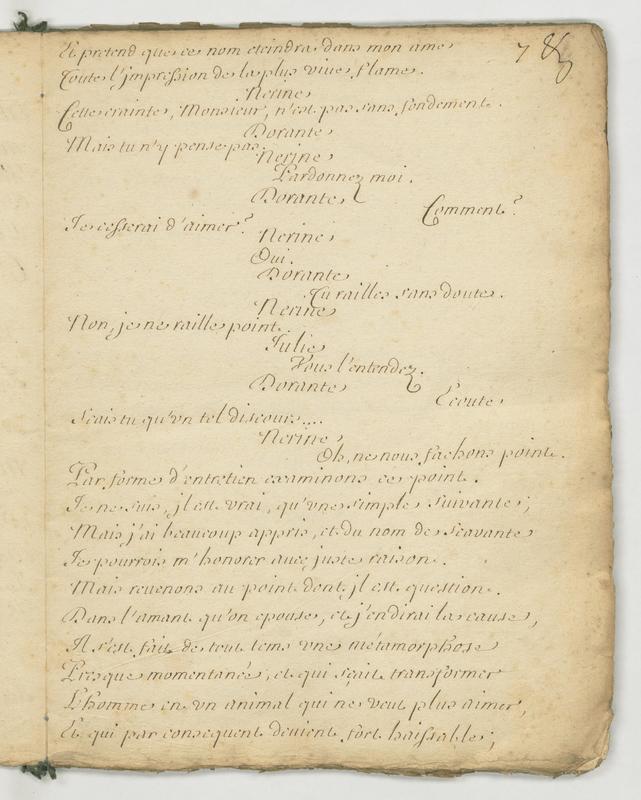 Et pretend que ce nom eteindra dans mon ame
7
Toute l'jmpression de la plus vive flame.
Nerine
Cette crainte, Monsieur, n'est pas sans fondement.
Dorante
Mais tu n'y pense pas.
Nerine
Pardonnez moi.
Dorante
Comment?
Je cesserai d'aimer?
Nerine
Oui.
Dorante
Tu railles sans doute.
Nerine
Non, je ne raille point.
Julie
Vous l'entendez.
Dorante
Ecoute
Scais tu qu'vn tel discours....
Nerine
Oh, ne nous fachons point.
Par forme d'entretien examinons ce point.
Je ne suis, jl est vrai, qu'vne simple suivante;
Mais j'ai beaucoup appris, et du nom de Scavante
Je pourrois m'honorer avec juste raison.
Mais revenons au point dont jl est question.
Dans l'amant qu'on epouse, et j'en dirai la cause,
Il s'est fait de tout tems vne métamorphose
Presque momentanée, et qui sçait transformer
L'homme en vn animal qui ne veut plus aimer,
Et qui par consequent devient fort haissable;